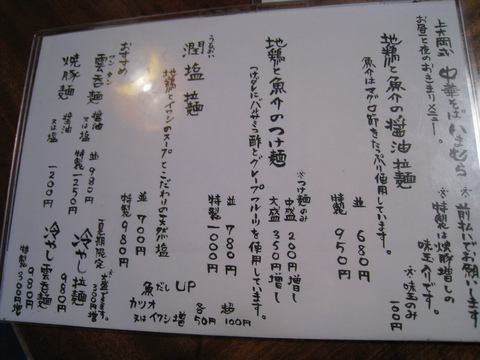 上大岡 中華そば いまむら
※前払いでお願いします
お昼と夜のおきまりメニュー。
※特製は焼豚増しの
味玉入りです。
※味玉のみ
100円
地鶏と魚介の醤油拉麺
魚介はマグロ節をたっぷり使用しています。
並 680円
特製 950円
地鶏と魚介のつけ麺
つけダレにバルサミコ酢とグレープフルーツを使用しています。
※つけ麺のみ
中盛 200円増し
大盛 350円増し
並 780円
特製 1000円
うるおい
潤塩拉麺
地鶏とイワシのスープとこだわりの天然塩
並 700円
特製 980円
魚だし UP
カツオ
又はイワシ増
各 50円
超 100円
おすすめ
ワンタン
雲呑麺
醤油
又は塩
並 980円
特製 1250円
焼豚麺
醤油
又は塩
1200円
夏期限定
冷おし拉麺
980円
冷おし雲呑麺
980円
特製 300円増